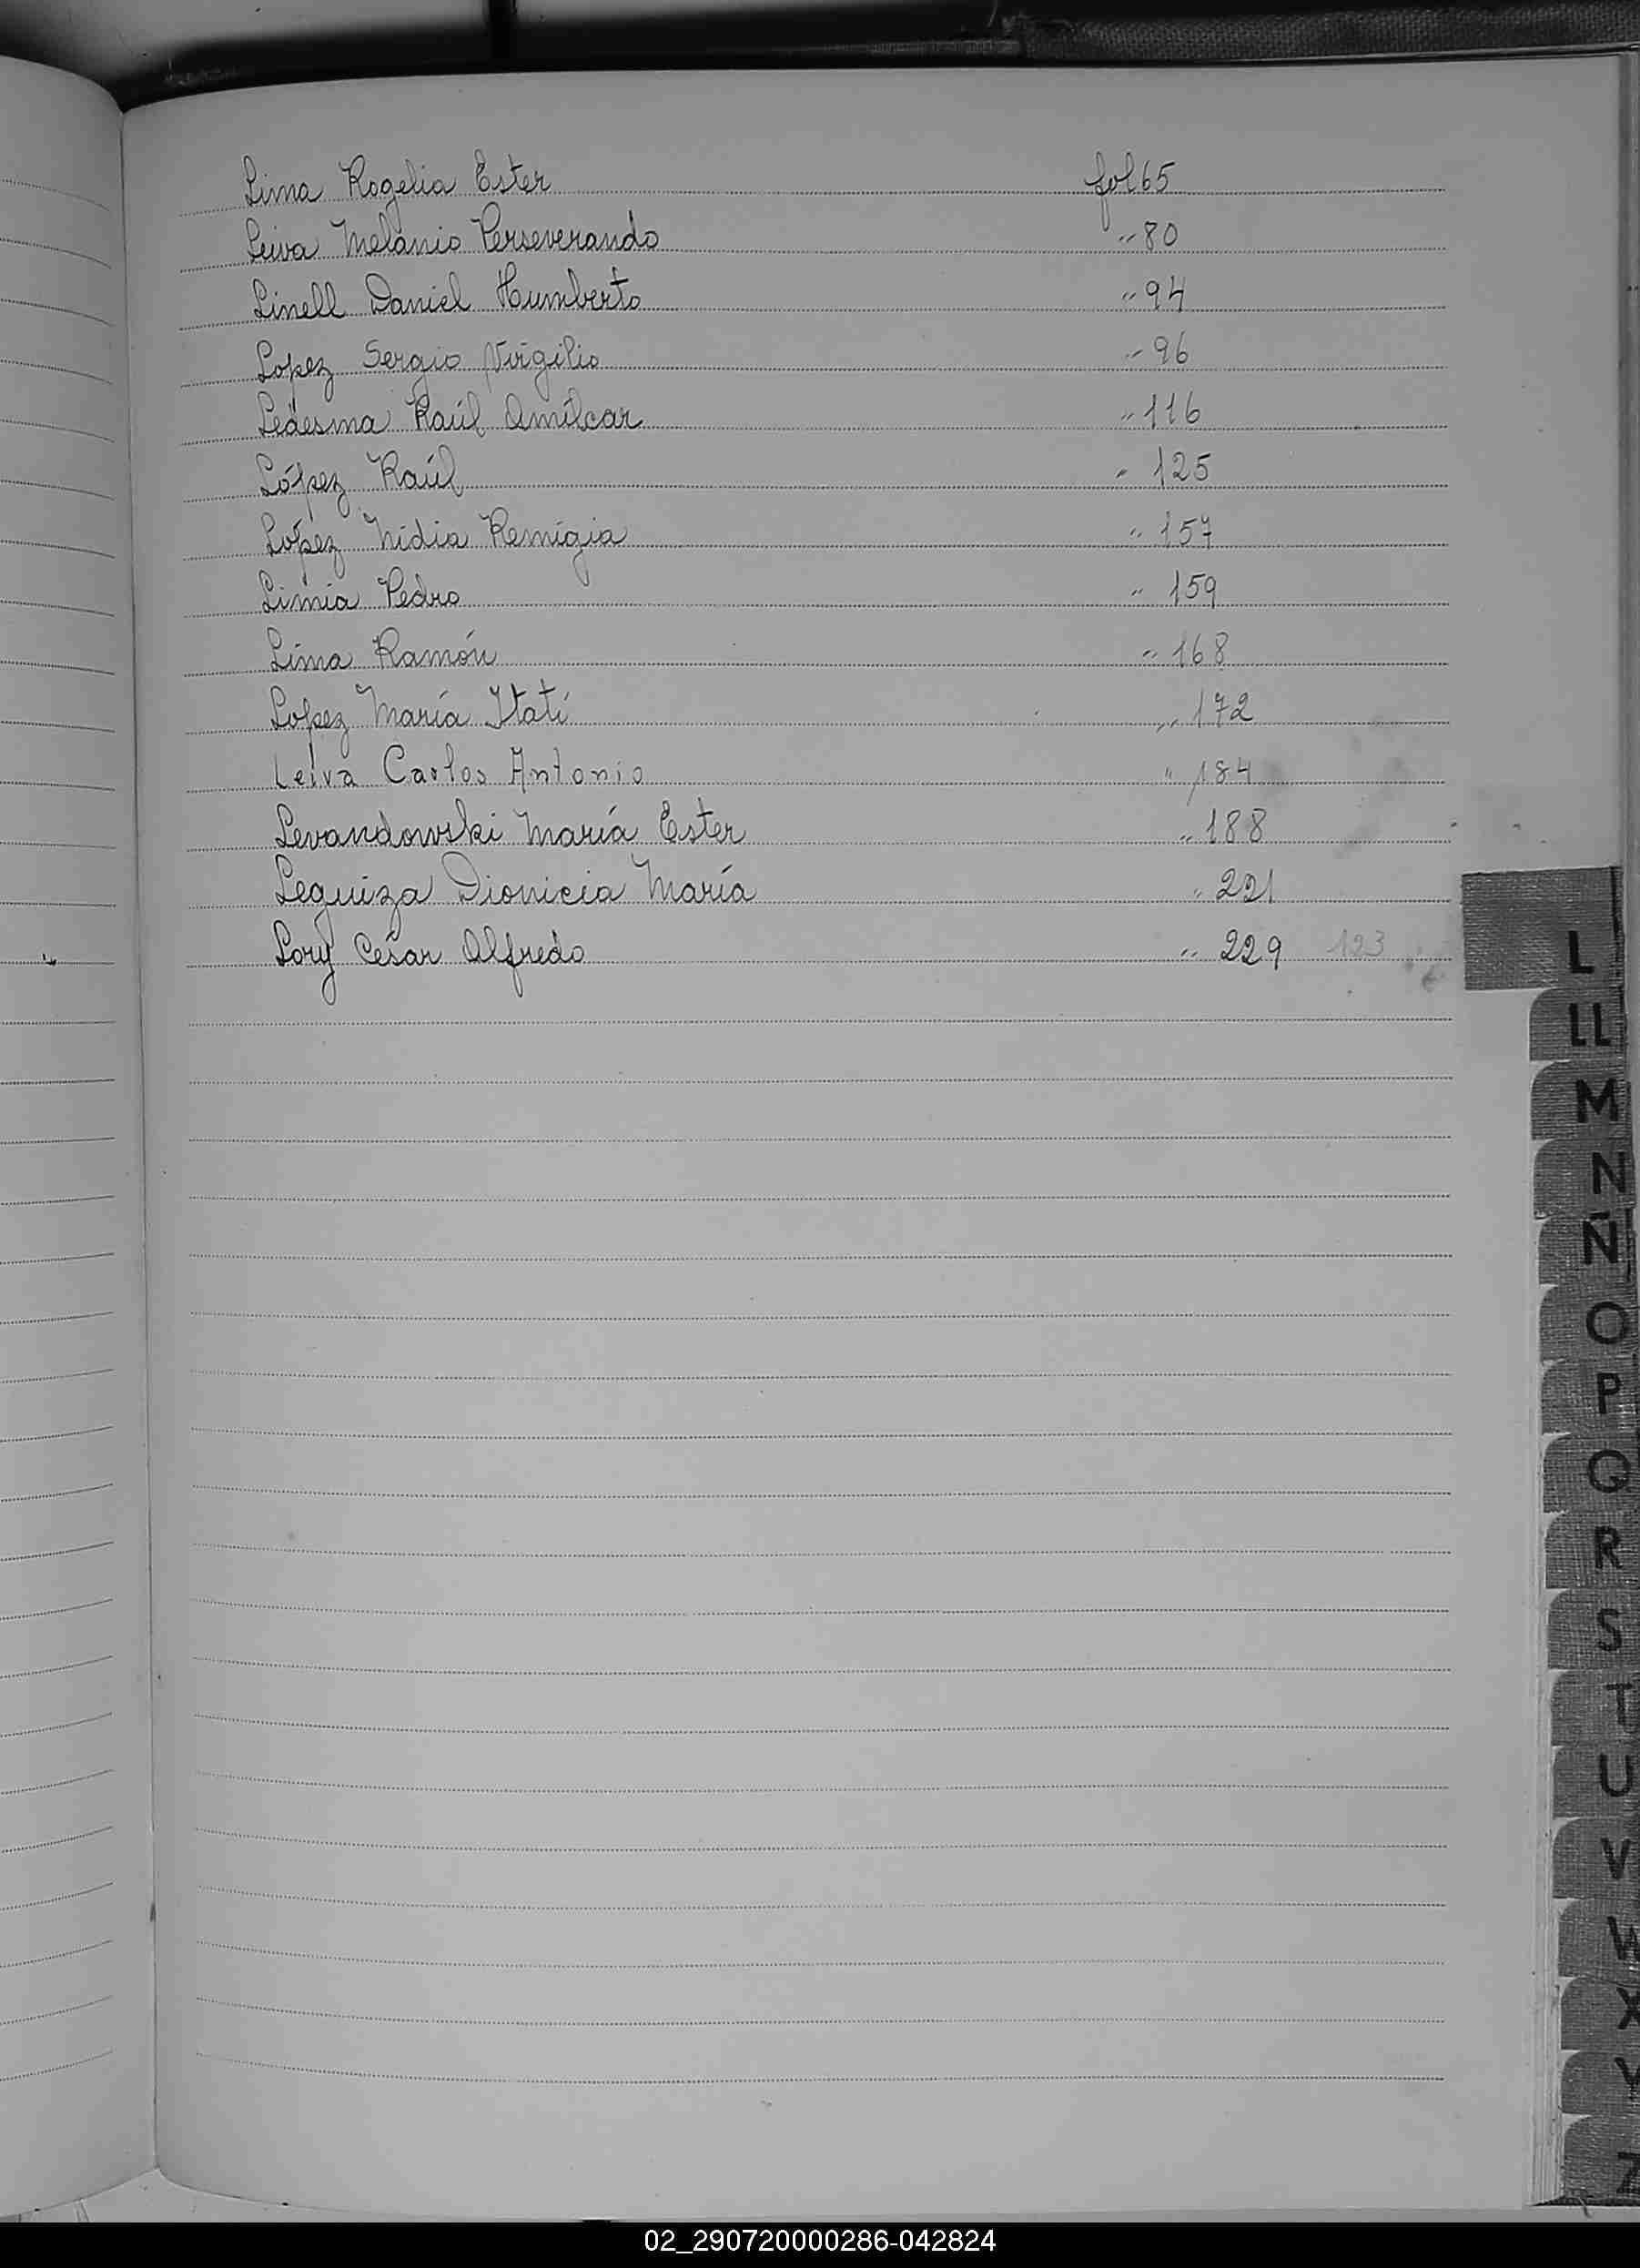 Lima Rogelia Ester fol 65
Leiva Melanio Perseverando " 80
Linell Daniel Humberto " 94
Lopez Sergio Virgilio " 96
Ledesma Raúl Amilcar " 116
López Raúl " 125
López Nidia Remigia " 157
Limia Pedro " 159
Lima Ramón " 168
Lopez María Itatí " 172
Leiva Carlos Antonio " 184
Levandowski María Ester " 188
Leguiza Dionicia María " 221
Lory César Alfredo " 229 123
L
LL
M
N
Ñ
O
P
Q
R
S
T
U
V
W
X
Y
Z
02_290720000286-042824